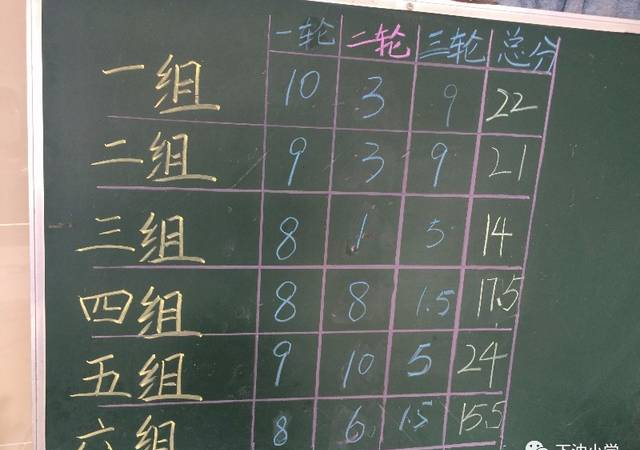 一轮 二轮 三轮 总分
一组 10 3 9 22
二组 9 3 9 21
三组 8 1 5 14
四组 8 8 1.5 17.5
五组 9 10 5 24
六组 8 6 1.5 15.5